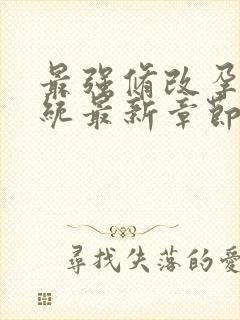 最强脩改孕
统最新章節
尋找失落的愛